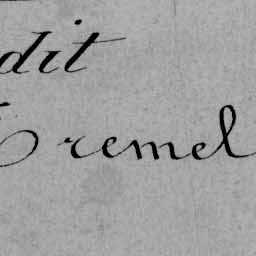 dit
Tremel